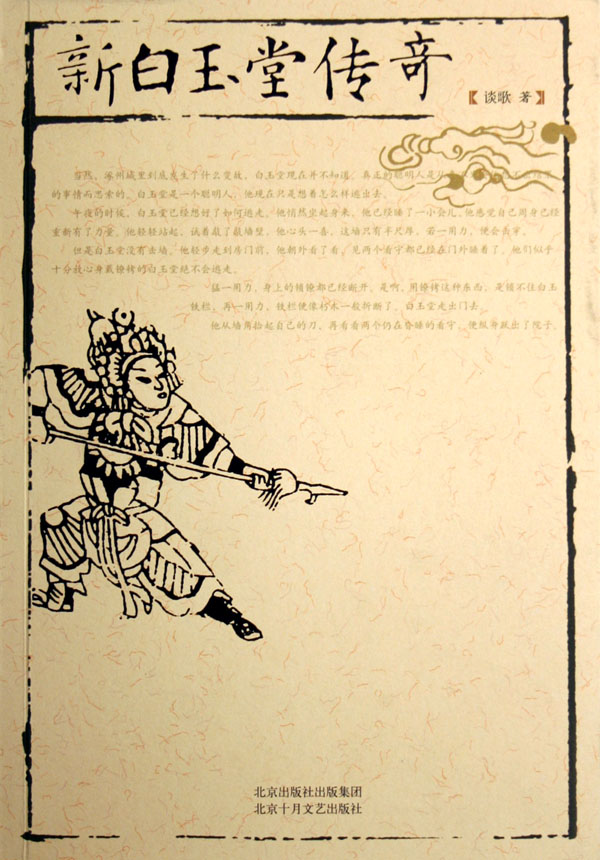 新白玉堂传奇
【谈歌 著】
当然，涿州城里到底发生了什么变故，白玉堂现在并不知道。真正的聪明人是从
的事情而思索的。白玉堂是一个聪明人，他现在只是想着怎么样逃出去。
午夜的时候，白玉堂已经想好了如何逃走。他悄然坐起身来，他已经睡了一小会儿，他感觉自己周身已经
重新有了力量。他轻轻站起，试着敲了敲墙壁，他心头一喜，这墙只有半尺厚，若一用力，便会击穿。
但是白玉堂没有击墙，他轻步走到房门前，他朝外看了看，见两个看守都已经在门外睡着了。他们似乎
十分放心身戴镣铐的白玉堂绝不会逃走。
猛一用力，身上的锁镣都已经断开，是啊，用镣铐这种东西，是锁不住白玉
铁栏，再一用力，铁栏便像朽木一般折断了。白玉堂走出门去。
他从墙角拾起自己的刀，再看看两个仍在昏睡的看守，便纵身跃出了院子。
北京出版社出版集团
北京十月文艺出版社